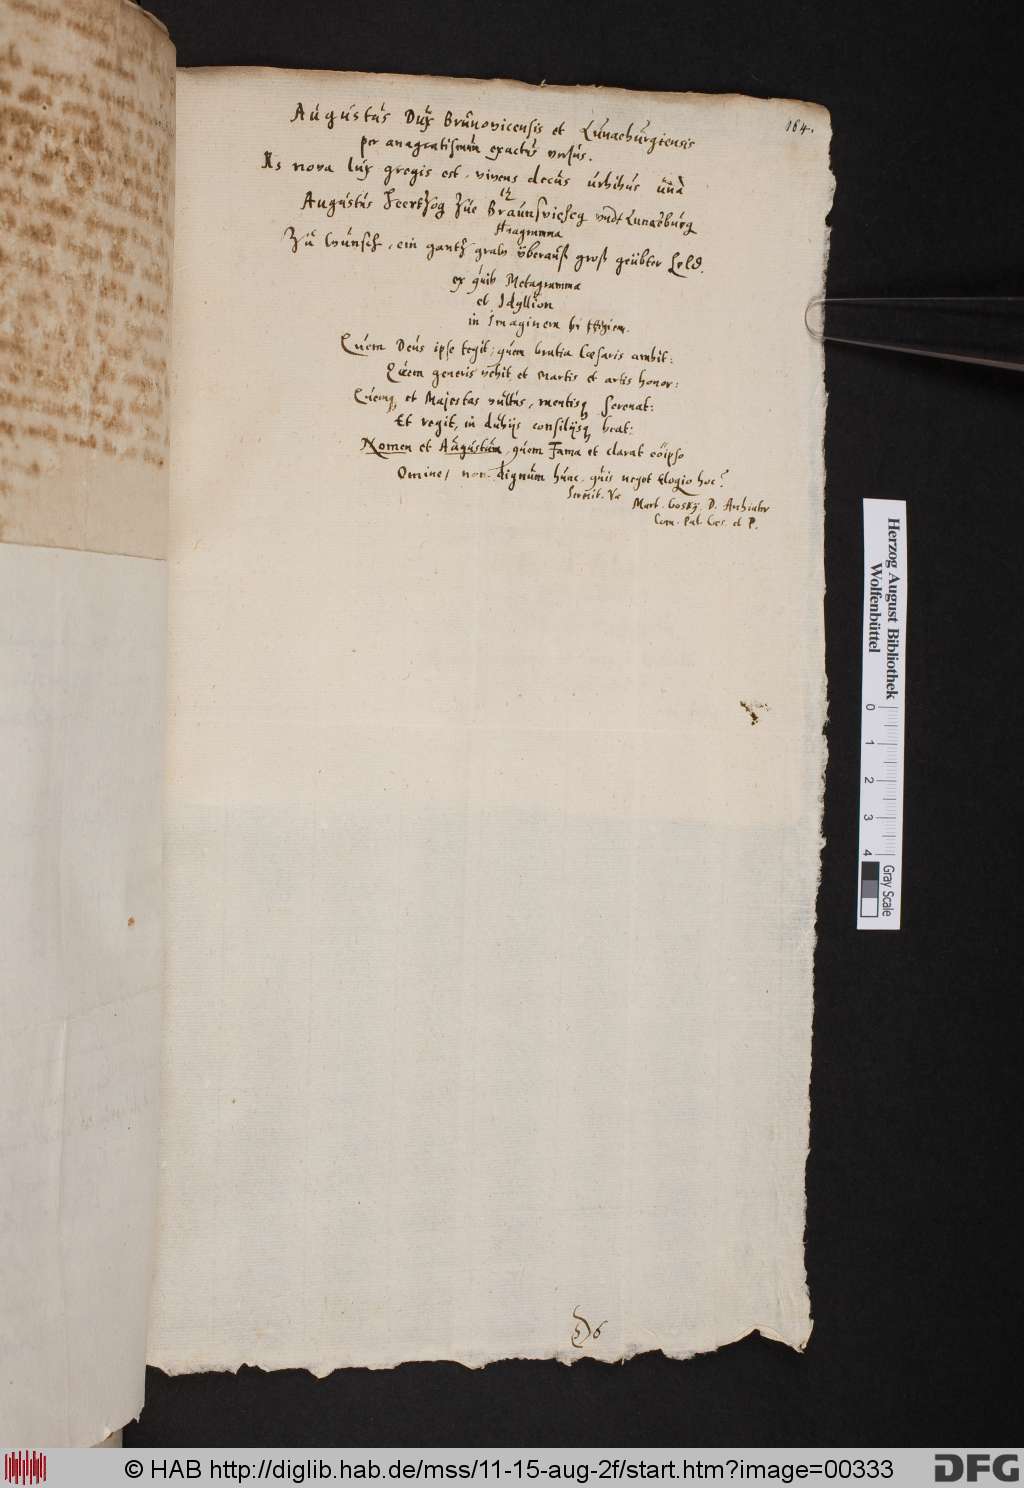 164.
Augustus Dux Brunovicensis et Lunaeburgiensis
per anagratismum exactū versus.
As nova lux gregis est, vivens decus urbibus unā
Augustus Heertzog Zue Braunsvieseg undt Lunaeburg
tz
Anagramma
Zu Wunsch, ein gantz grabs überauß groß geübter Held.
ex quib Metagramma
et Idyllion
in Imaginem
Quem Deus ipse tegit; quem bratia Cæsaris ambit:
Quem generis vehit, et Martis et artis honor:
Quemq et Majestas vultus, mentisq serenat:
Et regit, in dubijs consilijsq beat:
Nomen et Augustum, quem Fama et clarat eôipso
Omine, non dignum hunc quis neget Elogio hoc?
Mart. Gosky. D. Archiater
Com. Pal. Cæs. et P.
6
Herzog August Bibliothek
Wolfenbüttel
0 1 2 3 4
Gray Scale
© HAB http://diglib.hab.de/mss/11-15-aug-2f/start.htm?image=00333
DFG